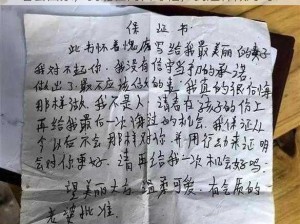 保证书
此书怀着愧疚写给我最美丽的妻子
我对不起你,我没有信守当初的承诺,
做出了最不应该做的事,我真的很后悔
那样做,我不是人,请看在孩子的份上
再给我最后一次悔过的机会,我保证从
今以后不会那样对你,并用行动来证明
会对你更好。请再给我一次机会好吗。
望美丽大方 可爱,有气质的
老婆批准。